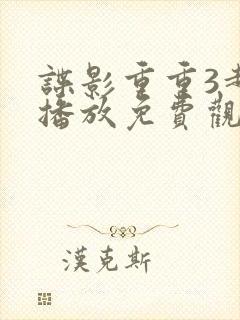 諜影重重3
播放免費觀
漢克斯